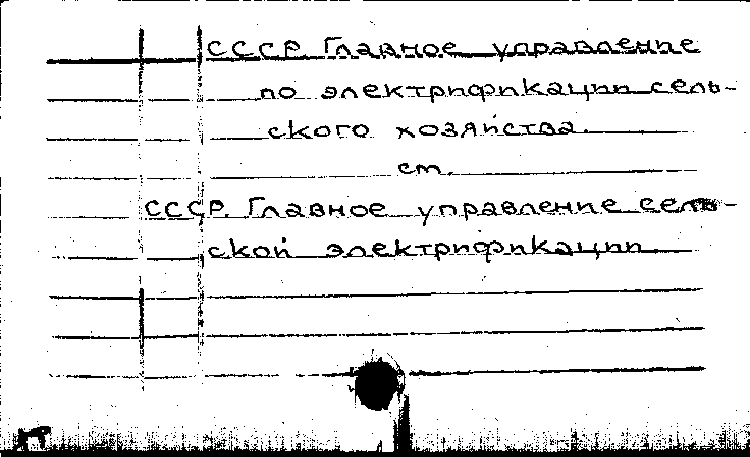 СССР. Главное управление
по электрификации сель-
ского хозяйства.
см.
СССР. Главное управление сель-
ской электрификации.